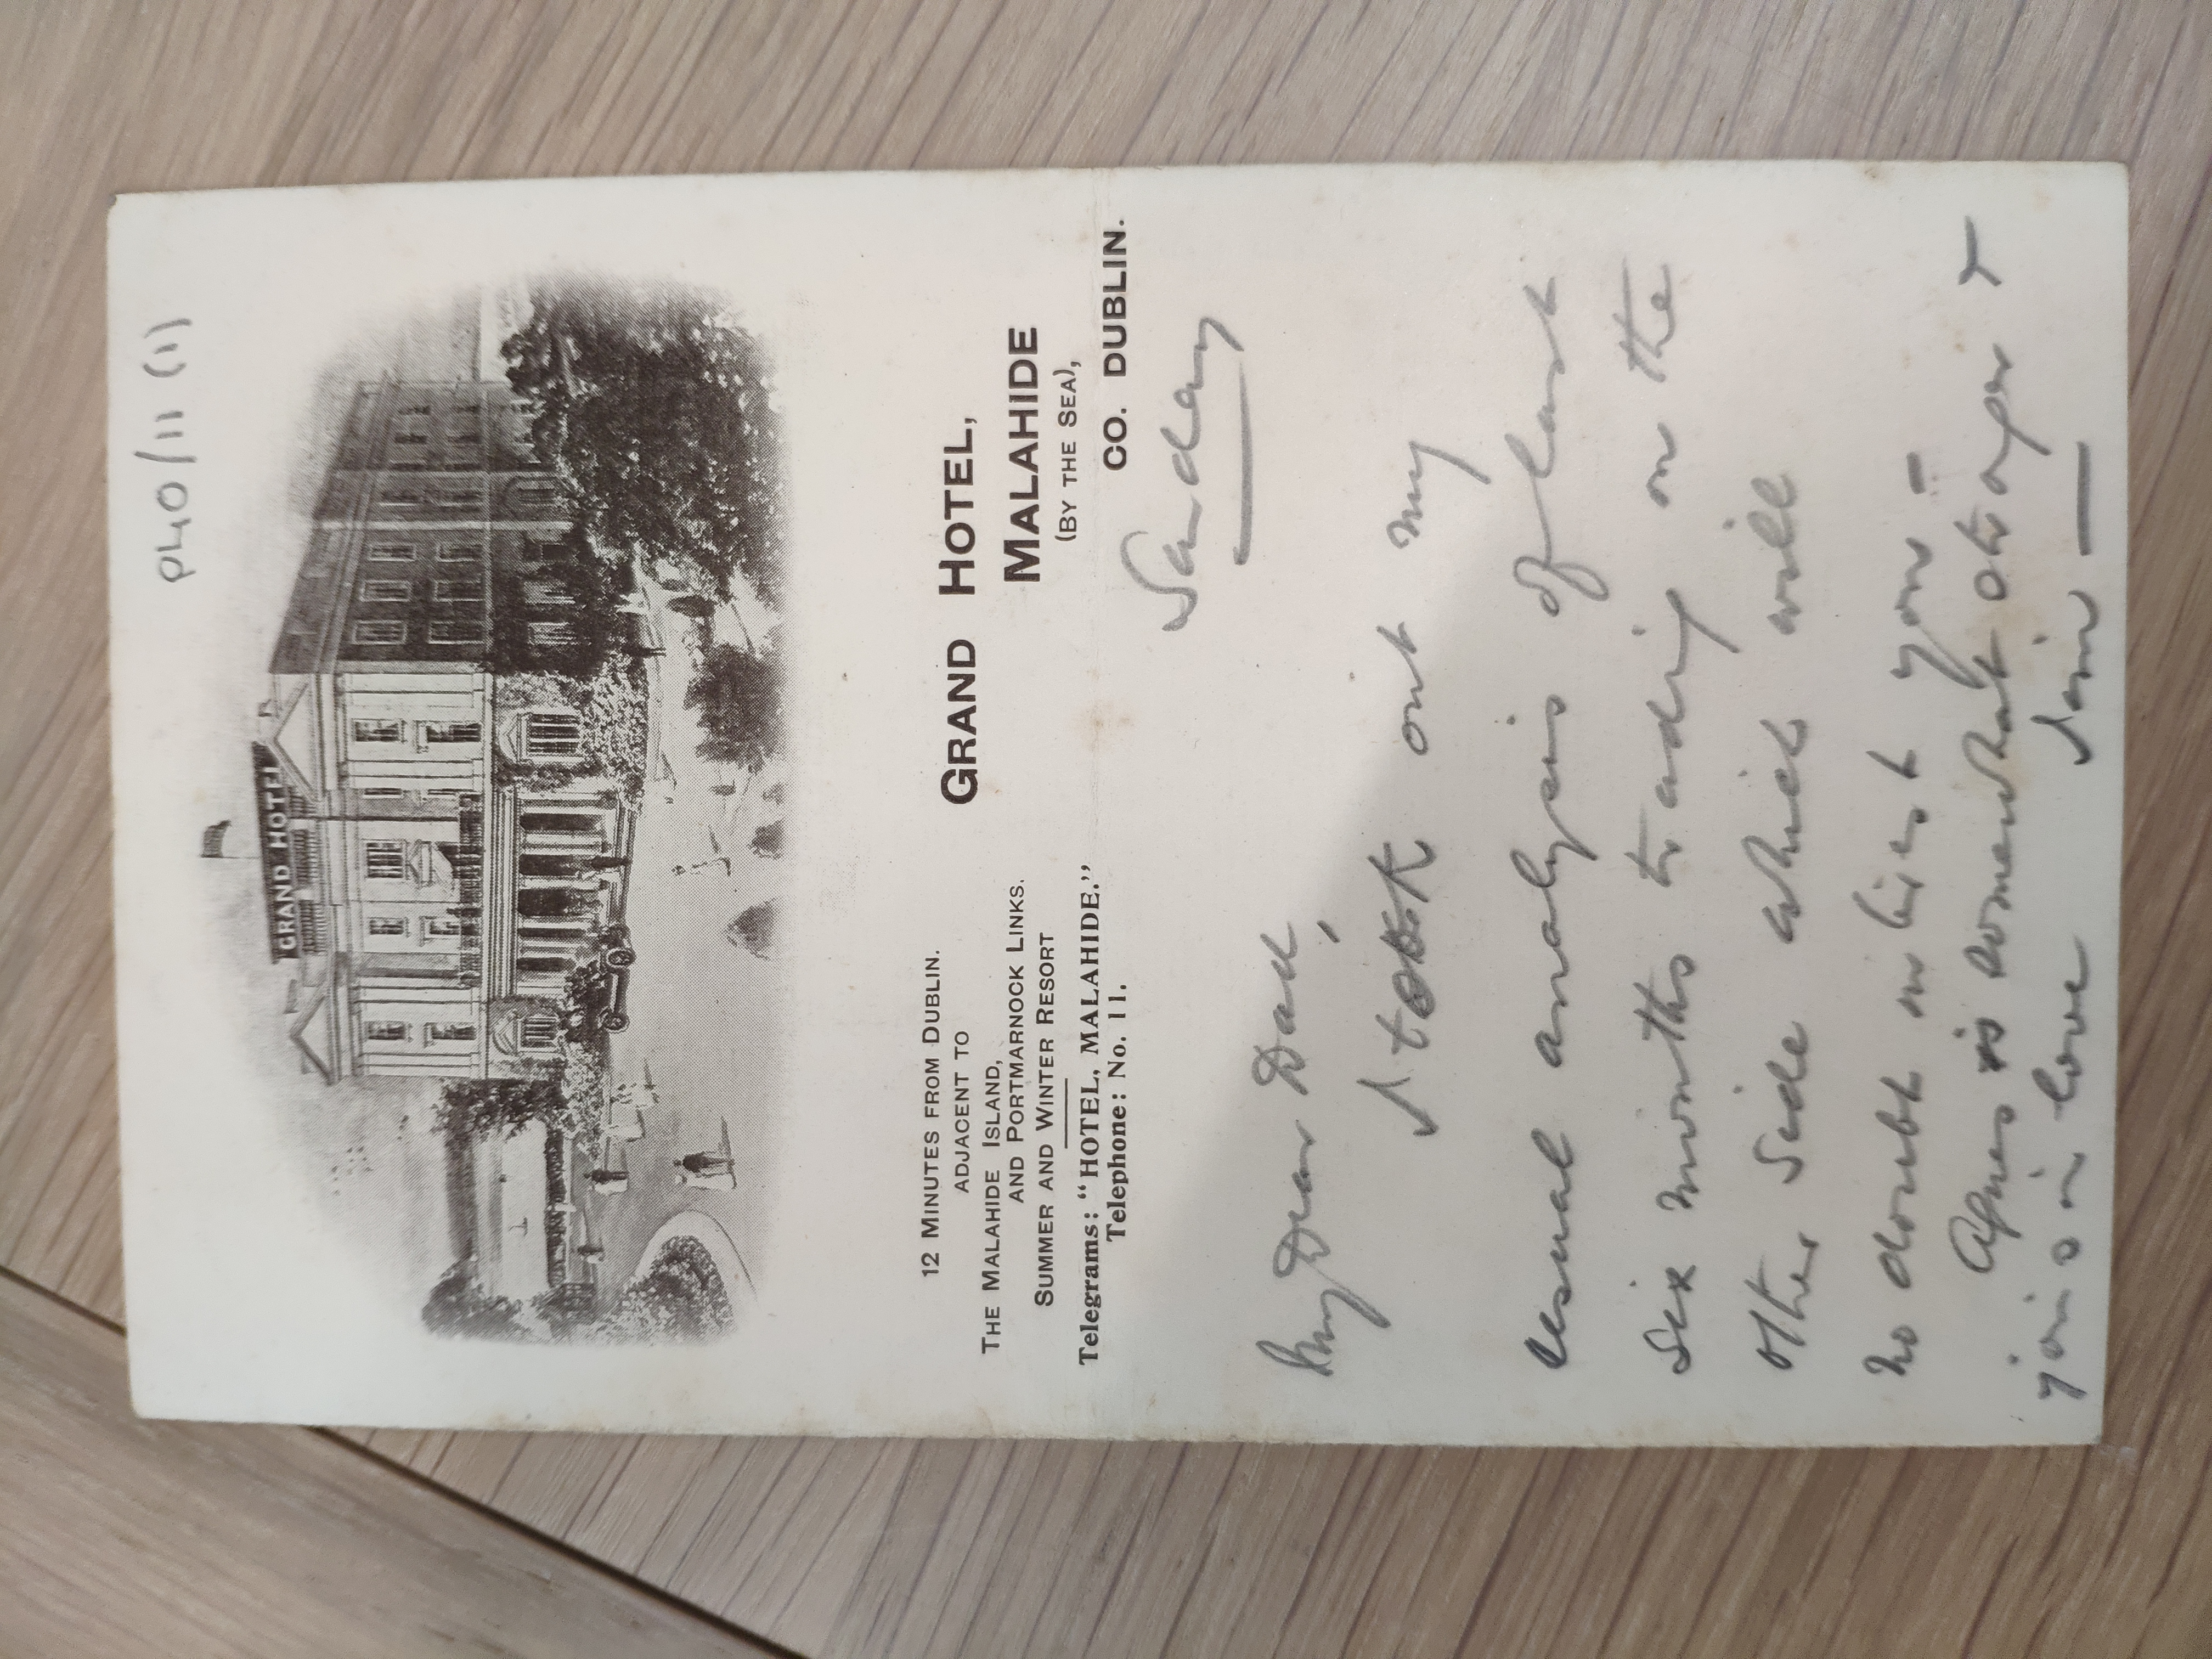 P40/11 (1)
GRAND HOTEL
12 MINUTES FROM DUBLIN.
ADJACENT TO
THE MALAHIDE ISLAND,
AND PORTMARNOCK LINKS.
SUMMER AND WINTER RESORT
Telegrams: “HOTEL, MALAHIDE.”
Telephone: No. 11.
GRAND HOTEL,
MALAHIDE
(BY THE SEA),
CO. DUBLIN.
Sunday
My Dear Dad,
I took out my
usual analysis of last
six months trading on the
other side which will
no doubt interest you –
Agnes is somewhat stronger &
joins in love